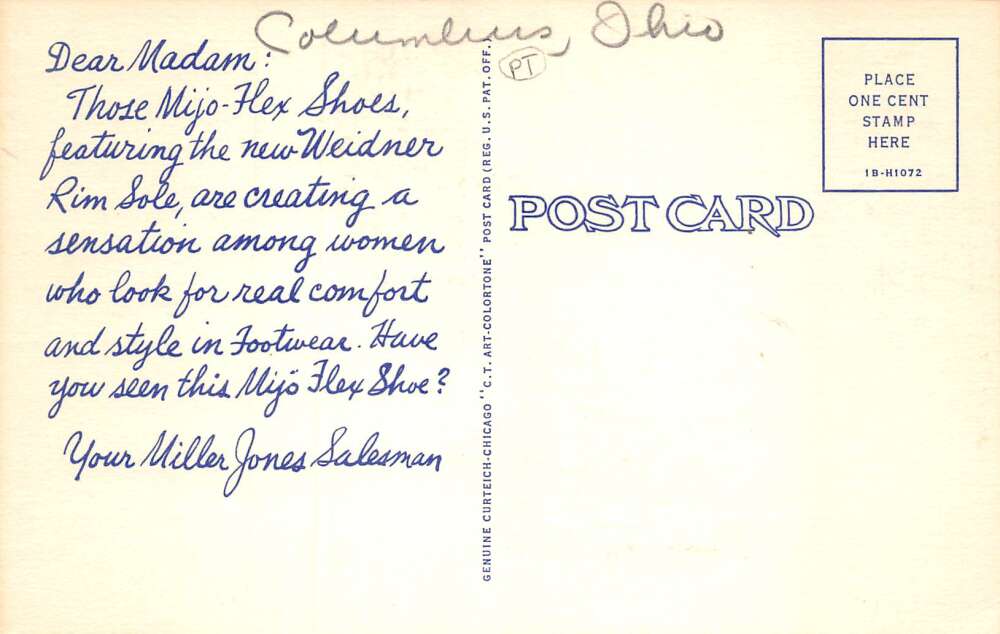 Columbus, Ohio
PT
Dear Madam:
Those Mijo-Flex Shoes,
featuring the new Weidner
Rim Sole, are creating a
sensation among women
who look for real comfort
and style in Footwear. Have
you seen this Mijo Flex Shoe?
Your Miller Jones Salesman
GENUINE CURTEICH-CHICAGO "C.T. ART-COLORTONE" POST CARD (REG. U.S. PAT. OFF.)
POST CARD
PLACE
ONE CENT
STAMP
HERE
1B-H1072